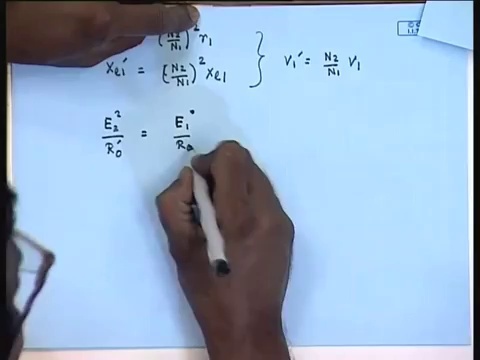 (N2/N1)² r1
xe1' = (N2/N1)² xe1 } V1' = N2/N1 V1
E2²/R0' = E1²/R0